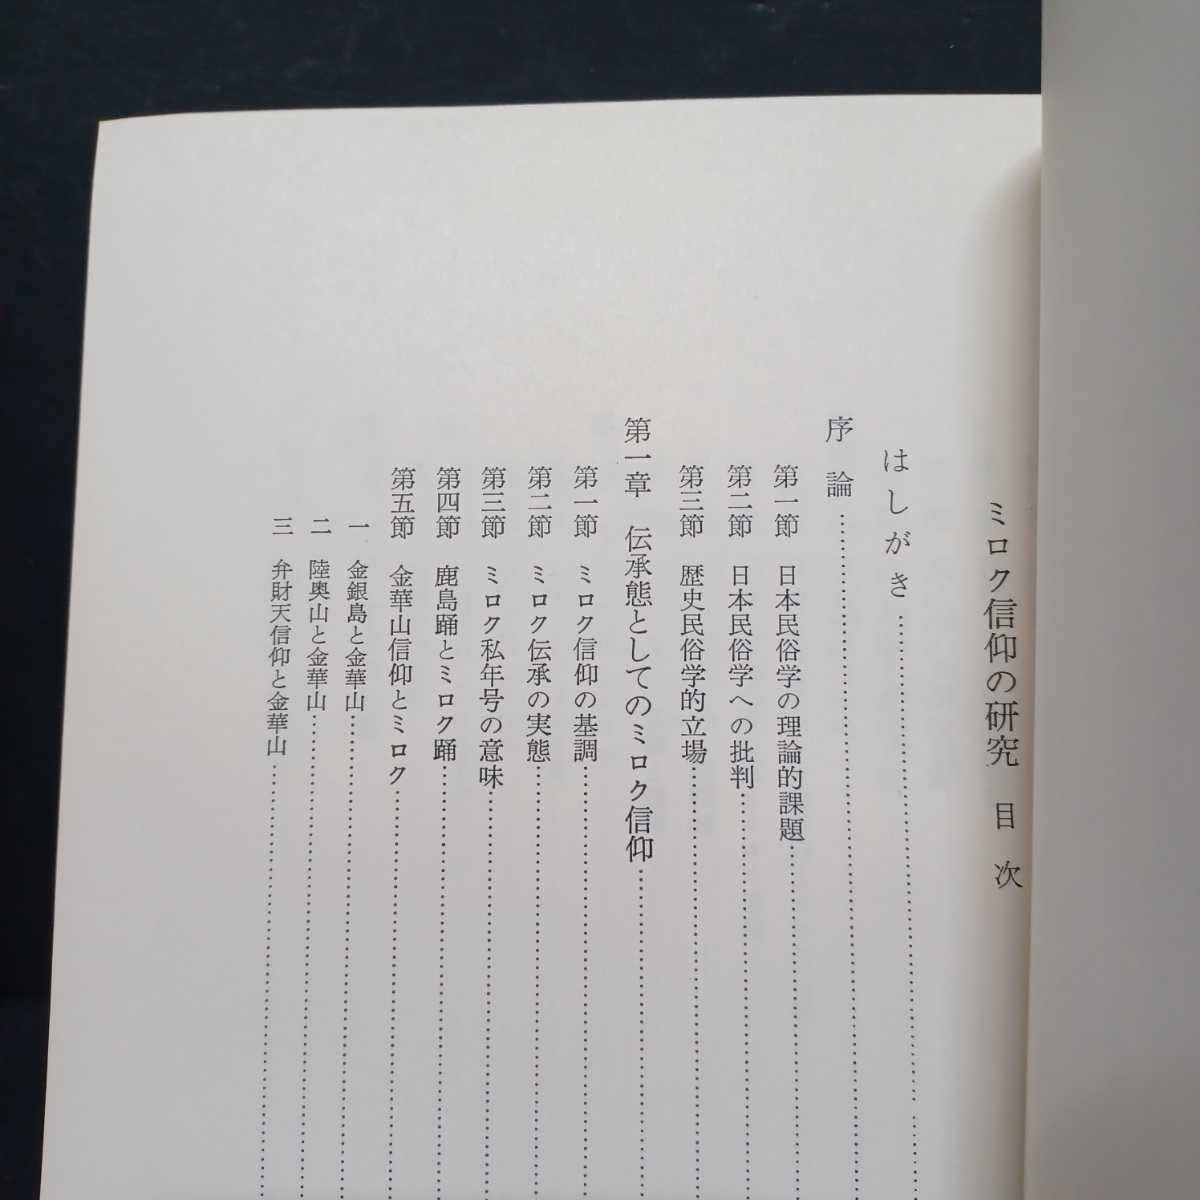 ミロク信仰の研究　目次
はしがき
序論
第一節　日本民俗学の理論的課題
第二節　日本民俗学への批判
第三節　歴史民俗学的立場
第一章　伝承態としてのミロク信仰
第一節　ミロク信仰の基調
第二節　ミロク伝承の実態
第三節　ミロク私年号の意味
第四節　鹿島踊とミロク踊
第五節　金華山信仰とミロク
一　金銀島と金華山
二　陸奥山と金華山
三　弁財天信仰と金華山